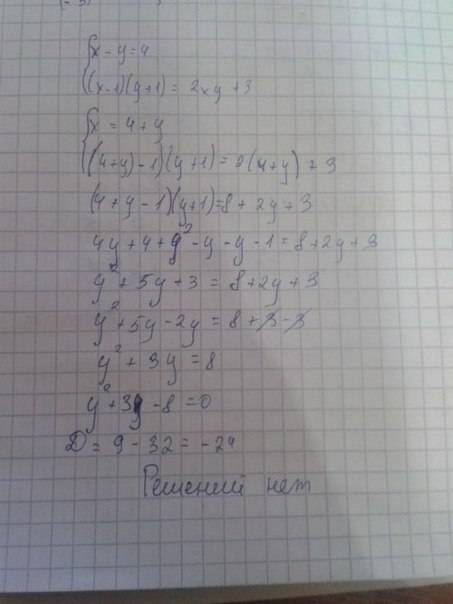 {x - y = 4
{(x-1)(y+1) = 2xy + 3
{x = 4 + y
{((4+y)-1)(y+1) = 2(4+y) + 3
(4+y-1)(y+1)=8+2y+3
4y+4+y²-y-y-1=8+2y+3
y²+5y+3 = 8+2y+3
y²+5y-2y = 8+3-3
y²+3y=8
y²+3y-8=0
D = 9-32 = -24
Решений нет